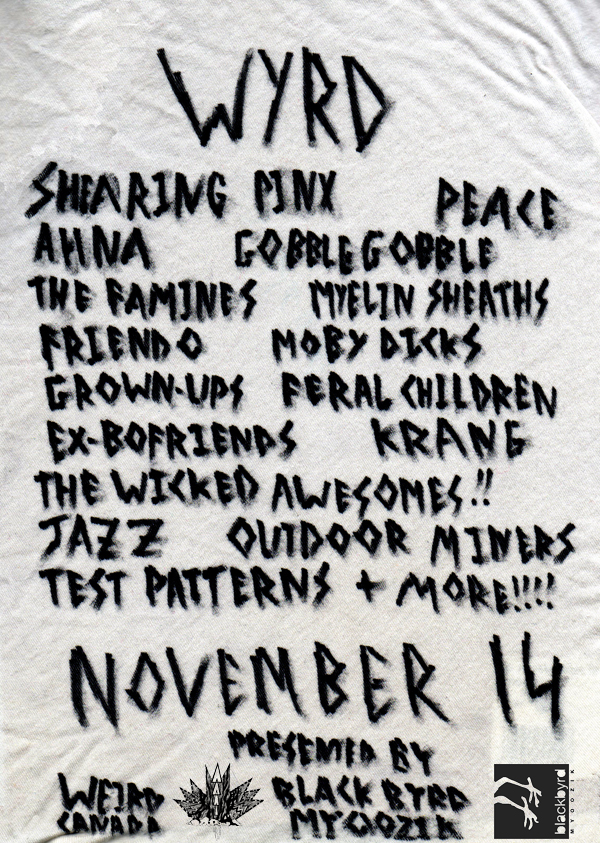 WYRD
SHEARING PINX PEACE
AHNA GOBBLEGOBBLE
THE FAMINES MYELIN SHEATHS
FRIENDO MOBY DICKS
GROWN-UPS FERAL CHILDREN
EX-BOFRIENDS KRANG
THE WICKED AWESOMES!!
JAZZ OUTDOOR MINERS
TEST PATTERNS + MORE!!!!
NOVEMBER 14
PRESENTED BY
WEIRD CANADA
BLACK BYRD MYOOZIK
blackbyrd
MYOOZIK